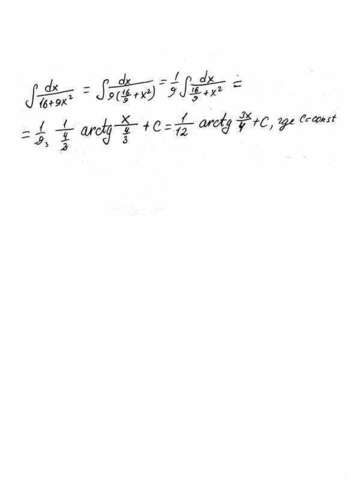 ∫ dx/(16+9x²) = ∫ dx/(9(16/9+x²)) = 1/9 ∫ dx/(16/9+x²) =
= 1/9 · 1/(4/3) arctg x/(4/3) + C = 1/12 arctg 3x/4 + C, где C=const